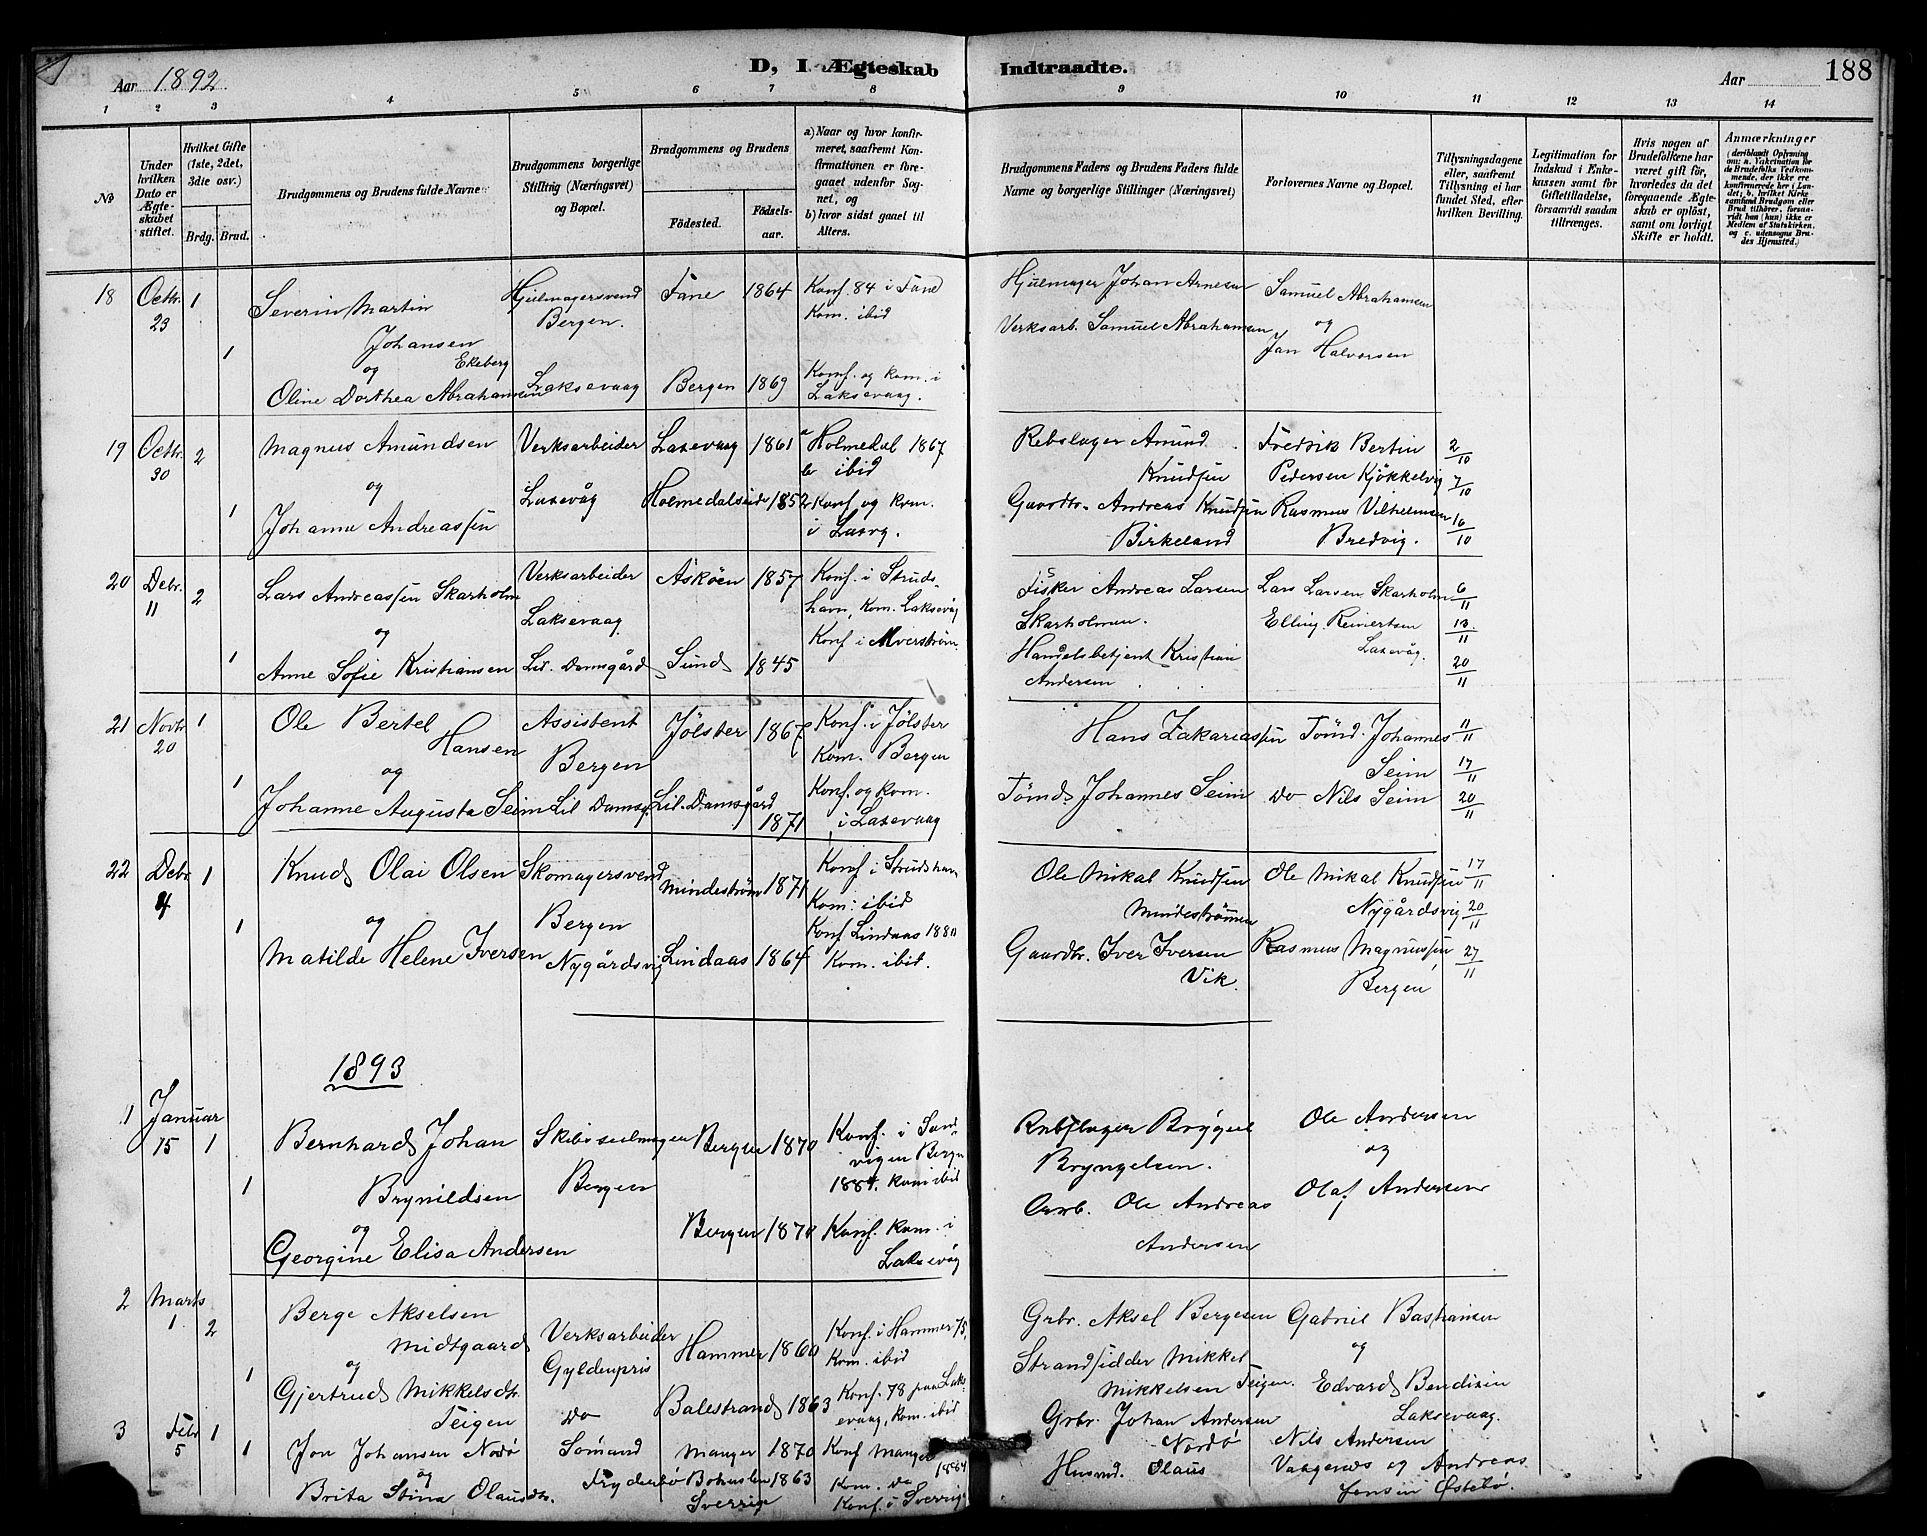 Aar 1892
D, I Ægteskab Indtraadte.
Aar
188
1 2 3 4 5 6 7 8 9 10 11 12 13 14
No
Under hvilken Dato er Ægteskabet stiftet.
Hvilket Gifte (1ste, 2det, 3die osv.)
Brdg. Brud.
Brudgommens og Brudens fulde Navne
Brudgommens borgerlige Stilling (Næringsvei) og Bopæl.
Brudgommens og Brudens
Födested.
Födselsaar.
a) Naar og hvor konfirmeret, saafremt Konfirmationen er foregaaet udenfor Sognet, og
b) hvor sidst gaaet til Alters.
Brudgommens Faders og Brudens Faders fulde Navne og borgerlige Stillinger (Næringsvei)
Forlovernes Navne og Bopæl.
Tillysningsdagene eller, saafremt Tillysning ei har fundet Sted, efter hvilken Bevilling.
Legitimation for Indskud i Enkekassen samt for Giftetilladelse, forsaavidt saadan tiltrænges.
Hvis nogen af Brudefolkene har været gift för, hvorledes da det foregaaende Ægteskab er oplöst, samt om lovligt Skifte er holdt.
Anmærkninger
18 Octbr. 23 1 Severin Martin Hjulmagersvend Fane 1864 Konf. 84 i Fane Hjulmager Johan Arnesen Samuel Abrahamsen
Bergen. Kom. ibid Verksarb. Samuel Abrahamsen og
1 Johansen Ekeberg Jan Halvorsen
og
Oline Dorthea Abrahamsen Laksevaag Bergen 1869 Konf. og kom. i Laksevaag.
19 Octbr. 30 2 Magnus Amundsen Verksarbeider Laxevaag 1861 a Holmedal 1867 Rebslager Amund Fredrik Bertin 2/10
og b ibid Knudsen Pedersen Kjökkelvig 7/10
1 Johanne Andreassen Laxevåg Holmedal 1852 Konf og kom. Gaardbr. Andreas Knudsen Rasmus Vilhelmsen 16/10
i Laxvg. Birkeland Bredvig.
20 Debr. 11 2 Lars Andreassen Skarholm Verksarbeider Askøen 1857 Konf. i Strudshavn, Kom. Laksevåg Fisker Andreas Larsen Lars Larsen Skarholm 6/11
og Laksevaag Skarholmen. Elling Reinertsen 13/11
1 Anne Sofie Kristiansen Lil. Damsgård Sund 1845 Konf. i Alverström Handelsbetjent Kristian Laxevåg. 20/11
Andersen
21 Novbr. 20 1 Ole Bertel Assistent Jölster 1867 Konf. i Jölster Hans Zakariassen Tömd. Johannes 11/11
Hansen Bergen Kom. Bergen Seim 17/11
og
1 Johanne Augusta Seim Lil Damsg. Lil. Damsgård 1871 Konf. og kom. i Laxevaag Tömd. Johannes Seim do Nils Seim 20/11
22 Debr. 4 1 Knud Olai Olsen Skomagersvend Mindeström 1871 Konf. i Strudshavn Ole Mikal Knudsen Ole Mikal Knudsen 17/11
og Bergen Kom: ibid Mindeströmmen Nygårdsvig 20/11
1 Matilde Helene Iversen Nygårdsvig Lindaas 1864 Konf Lindaas 1880 Gaardbr. Iver Iversen Rasmus Magnussen 27/11
Kom. ibid. Vik. Bergen
1893
1 Januar 15 1 Bernhard Johan Bergen 1870 Konf. i Sandvigen Bergen Rebslager Ole Andersen
1 Brynildsen Bergen 1884. kom ibid Bryngelsen. og
og Arb. Ole Andreas Olaf Andersen
Georgine Elisa Andersen Bergen 1870 Konf. kom. i Laksevåg Andersen
2 Marts 1 2 Berge Akselsen Grbr. Aksel Bergesen Gabriel Bastiansen
Midtgaard Verksarbeider Hammer 1860 Konf. i Hammer 75, Strandsidder Mikkel og
og Gyldenpris Kom. ibid Mikkelsen Teigen. Edvard Bendixen
1 Gjertrud Mikkelsdtr. Teigen do Balestrand 1863 Konf. 78 paa Laksevaag, kom. ibid Laksevaag.
3 Febr 5 1 1 Jon Johansen Nodö Sömand Manger 1870 Konf Manger 1884 Grbr. Johan Andersen Nordö Nils Andersen
og Frydenbö Bohuslen 1863 Kom. do Husmd. Olaus og Andreas
Brita Stina Olausdtr. Sverrige Konf. i Sverrige Jensen Østebö.